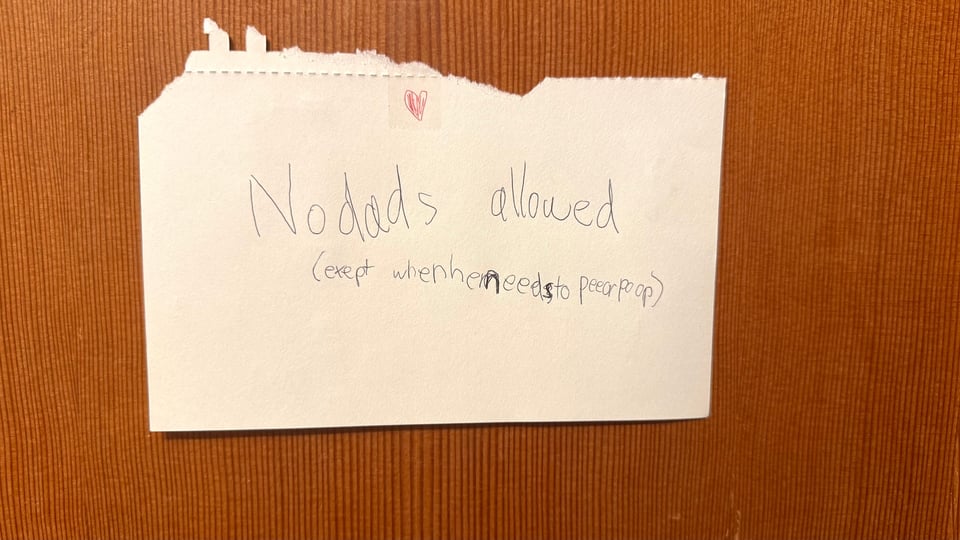 No dads allowed
(exept when he needs to pee or poop)